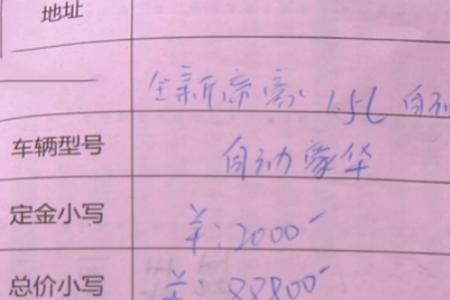 地址
全新帝豪 1.5L 自动
车辆型号
自动豪华
定金小写
¥:2000
总价小写
¥:88800